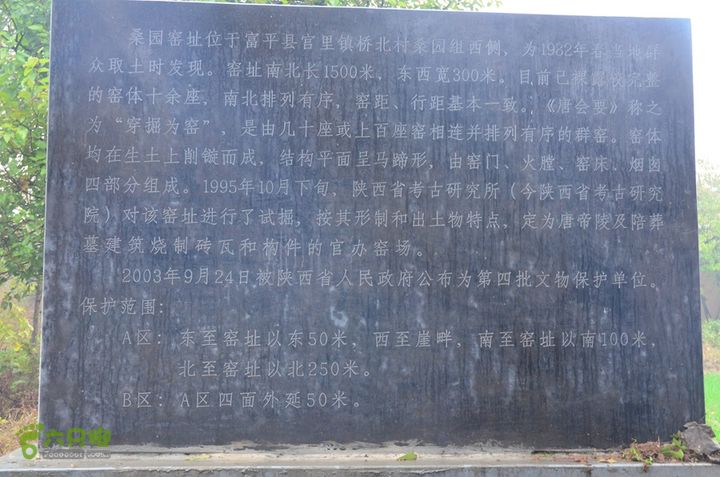 桑园窑址位于富平县官里镇桥北村桑园组西侧，为1982年春当地群
众取土时发现。窑址南北长1500米，东西宽300米。目前已裸露较完整
的窑体十余座，南北排列有序，窑距、行距基本一致。《唐会要》称之
为“穿掘为窑”，是由几十座或上百座窑相连并排列有序的群窑。窑体
均在生土上削镟而成，结构平面呈马蹄形，由窑门、火膛、窑床、烟囱
四部分组成。1995年10月下旬，陕西省考古研究所（今陕西省考古研究
院）对该窑址进行了试掘，按其形制和出土物特点，定为唐帝陵及陪葬
墓建筑烧制砖瓦和构件的官办窑场。
2003年9月24日被陕西省人民政府公布为第四批文物保护单位。
保护范围：
A区：东至窑址以东50米，西至崖畔，南至窑址以南100米，
北至窑址以北250米。
B区：A区四面外延50米。
六只脚